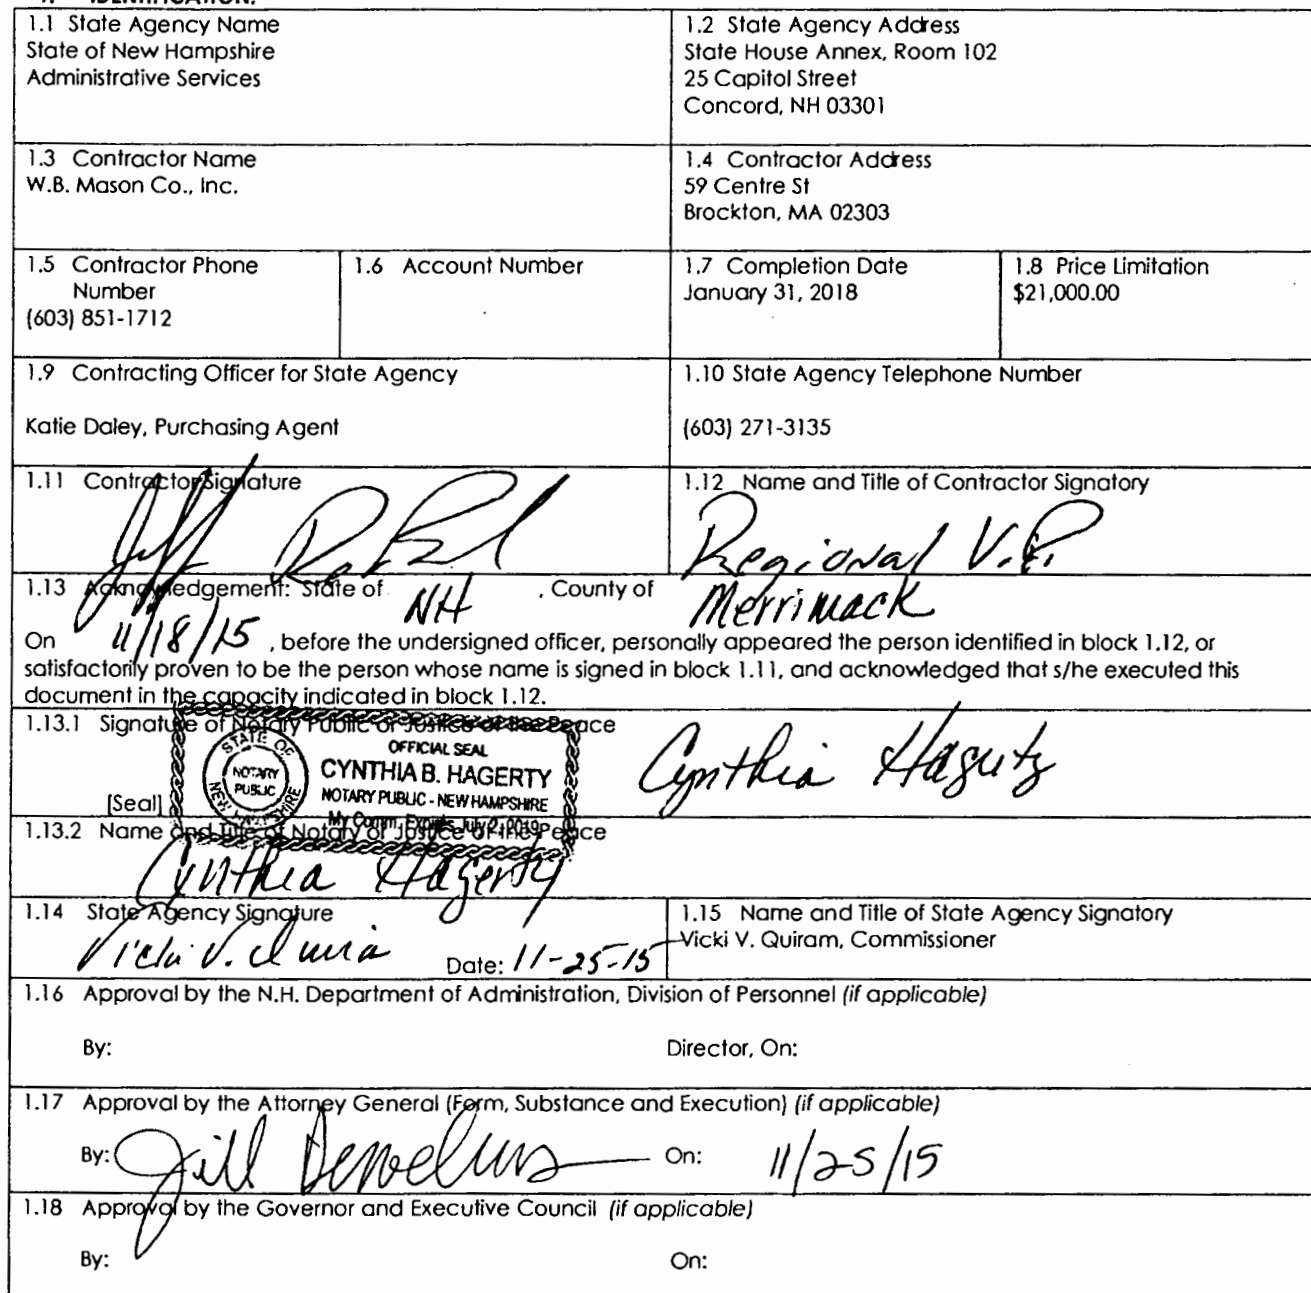 1. IDENTIFICATION.
1.1 State Agency Name
State of New Hampshire
Administrative Services
1.2 State Agency Address
State House Annex, Room 102
25 Capitol Street
Concord, NH 03301
1.3 Contractor Name
W.B. Mason Co., Inc.
1.4 Contractor Address
59 Centre St
Brockton, MA 02303
1.5 Contractor Phone
Number
(603) 851-1712
1.6 Account Number
1.7 Completion Date
January 31, 2018
1.8 Price Limitation
$21,000.00
1.9 Contracting Officer for State Agency
Katie Daley, Purchasing Agent
1.10 State Agency Telephone Number
(603) 271-3135
1.11 Contractor Signature
1.12 Name and Title of Contractor Signatory
Regional V.P.
1.13 Acknowledgement: State of NH , County of Merrimack
On 11/18/15 , before the undersigned officer, personally appeared the person identified in block 1.12, or
satisfactorily proven to be the person whose name is signed in block 1.11, and acknowledged that s/he executed this
document in the capacity indicated in block 1.12.
1.13.1 Signature of Notary Public or Justice of the Peace
STATE OF
NOTARY
PUBLIC
NEW HAMPSHIRE
OFFICIAL SEAL
CYNTHIA B. HAGERTY
NOTARY PUBLIC - NEW HAMPSHIRE
My Comm. Expires July 2, 2019
Cynthia Hagerty
[Seal]
1.13.2 Name and Title of Notary or Justice of the Peace
Cynthia Hagerty
1.14 State Agency Signature
Vicki V. Quiram
Date: 11-25-15
1.15 Name and Title of State Agency Signatory
Vicki V. Quiram, Commissioner
1.16 Approval by the N.H. Department of Administration, Division of Personnel (if applicable)
By: Director, On:
1.17 Approval by the Attorney General (Form, Substance and Execution) (if applicable)
By: Jill On: 11/25/15
1.18 Approval by the Governor and Executive Council (if applicable)
By: On: